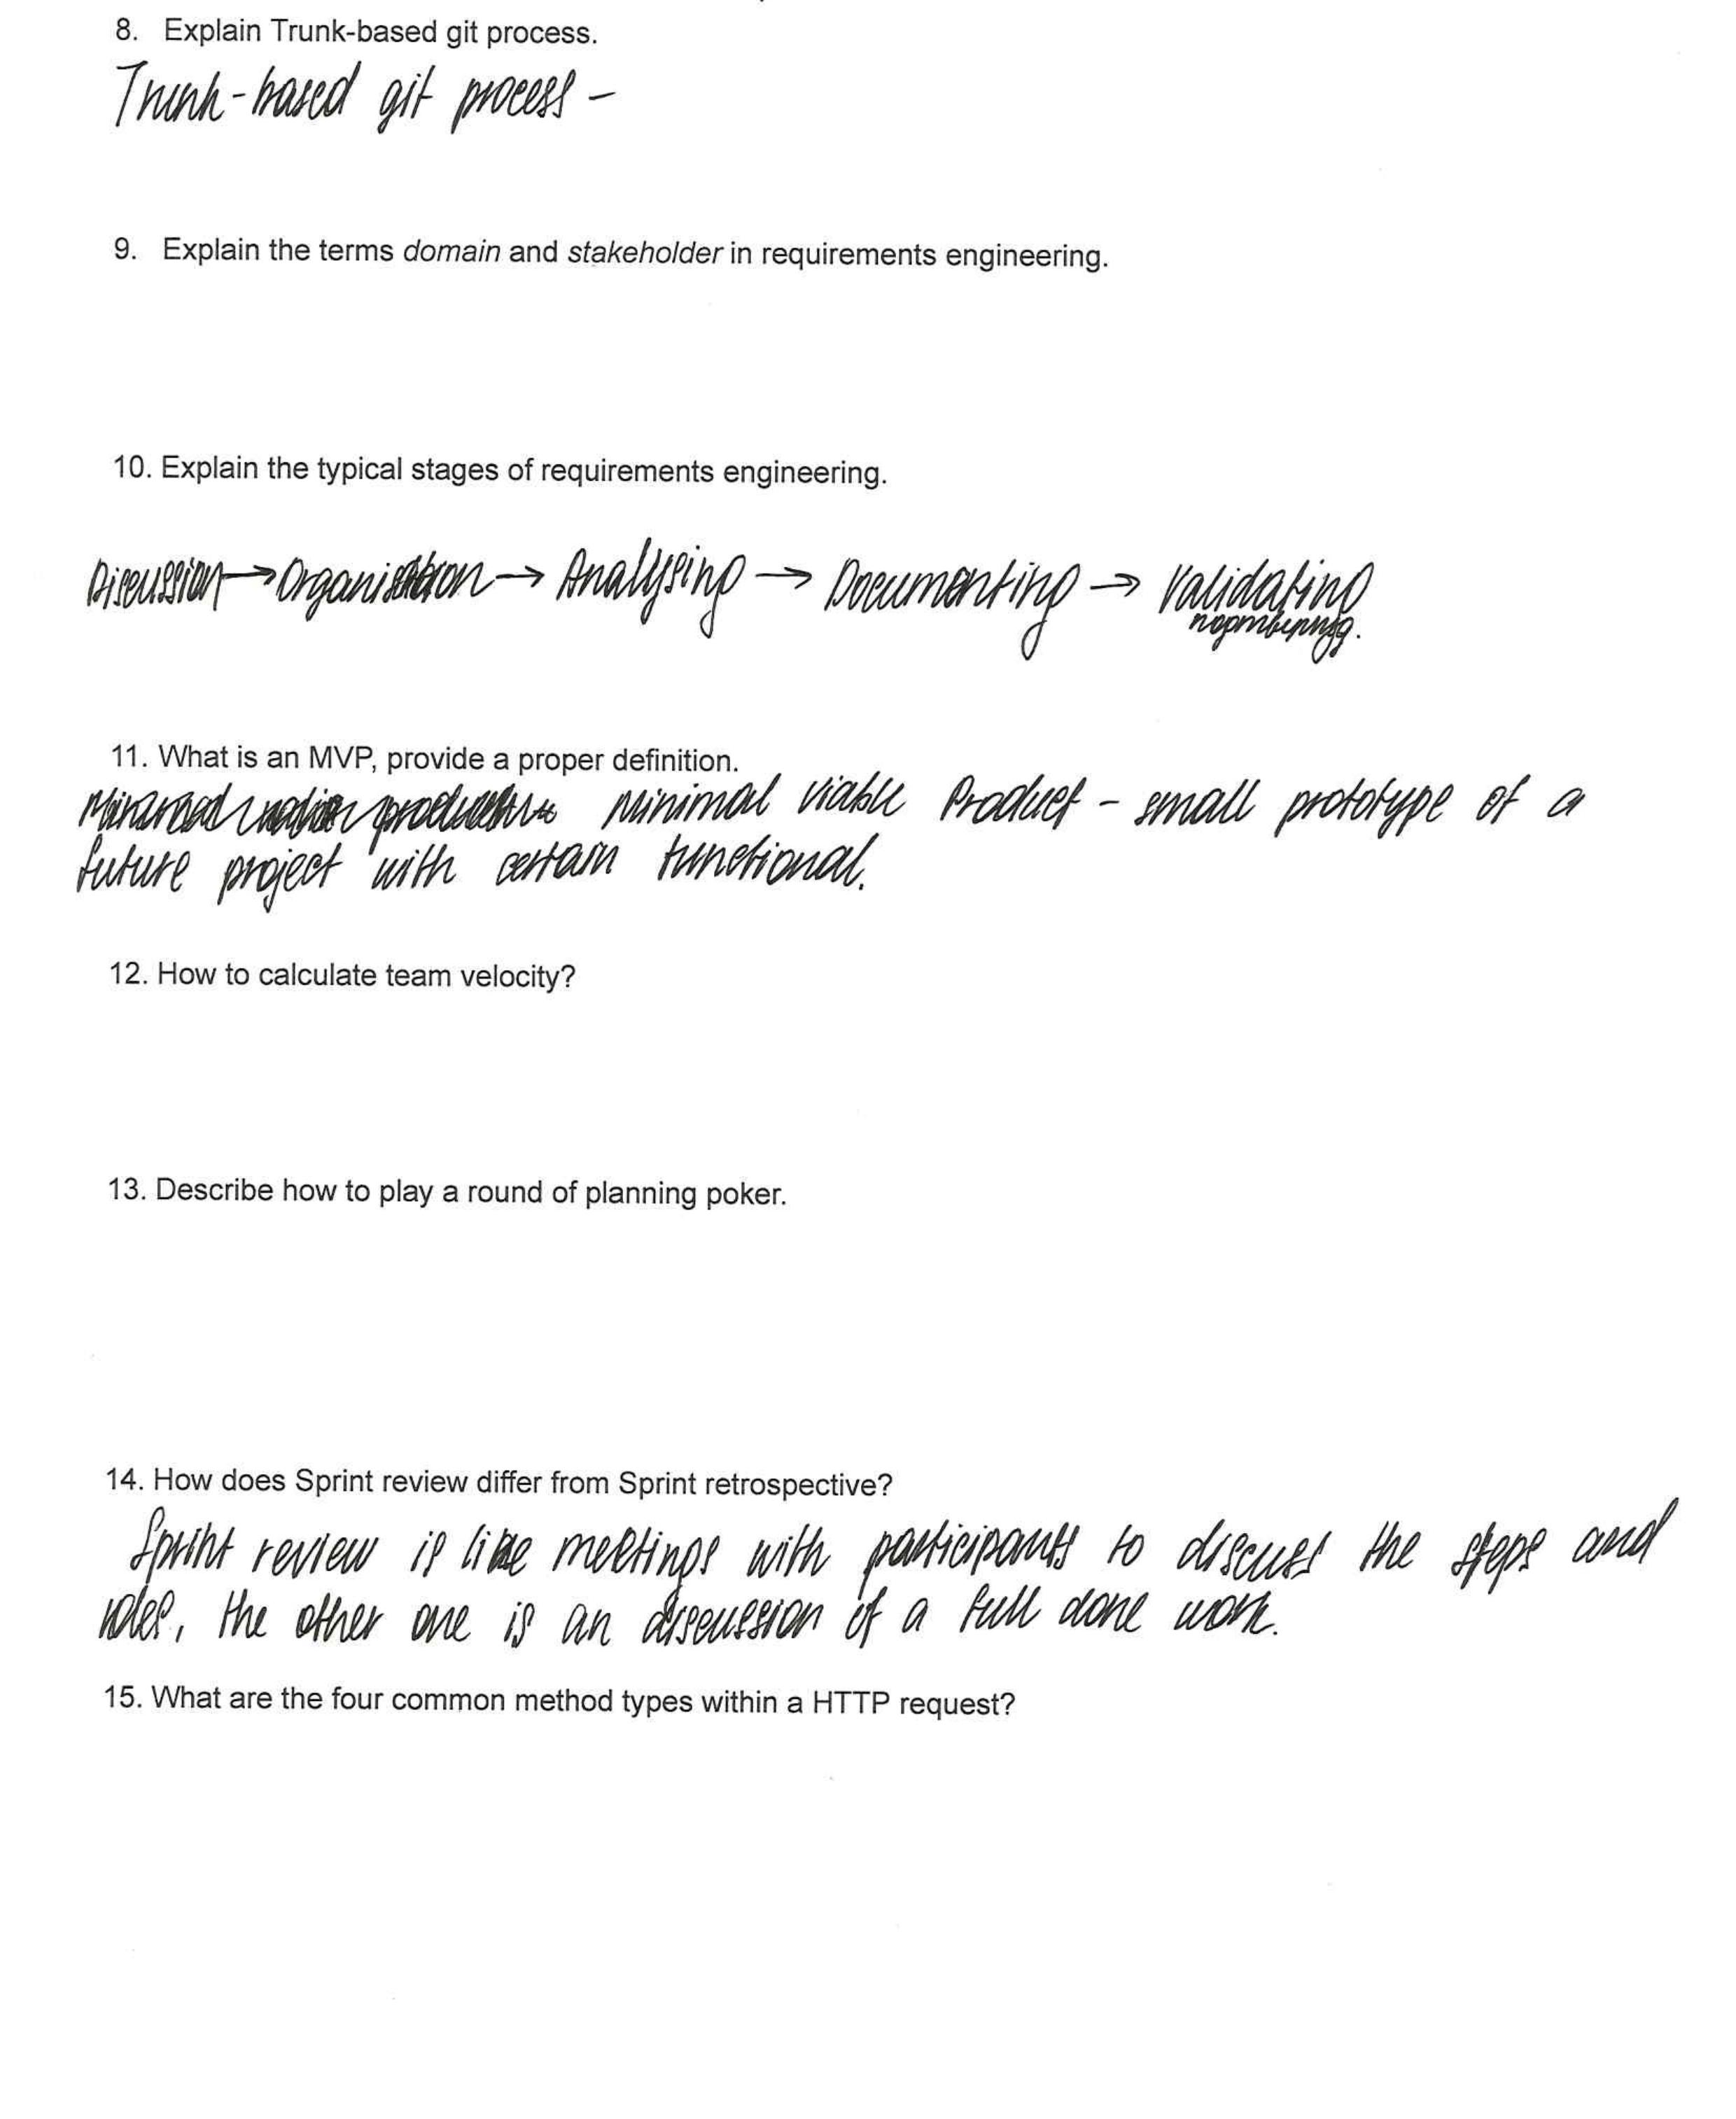 8. Explain Trunk-based git process.
Trunk-based git process -
9. Explain the terms domain and stakeholder in requirements engineering.
10. Explain the typical stages of requirements engineering.
Discussion → Organisation → Analysing → Documenting → Validating
11. What is an MVP, provide a proper definition.
Minimal viable Product - small prototype of a
future project with certain functional.
12. How to calculate team velocity?
13. Describe how to play a round of planning poker.
14. How does Sprint review differ from Sprint retrospective?
Sprint review is like meetings with participants to discuss the steps and
the other one is an discussion of a full done work.
15. What are the four common method types within a HTTP request?